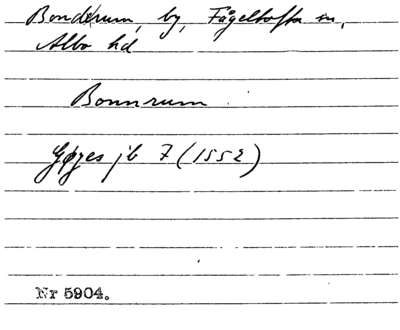 Bonderum, by, Fågeltofta sn,
Albo hd
Bonnrum
Gøyes jb 7 (1552)
Nr 5904.